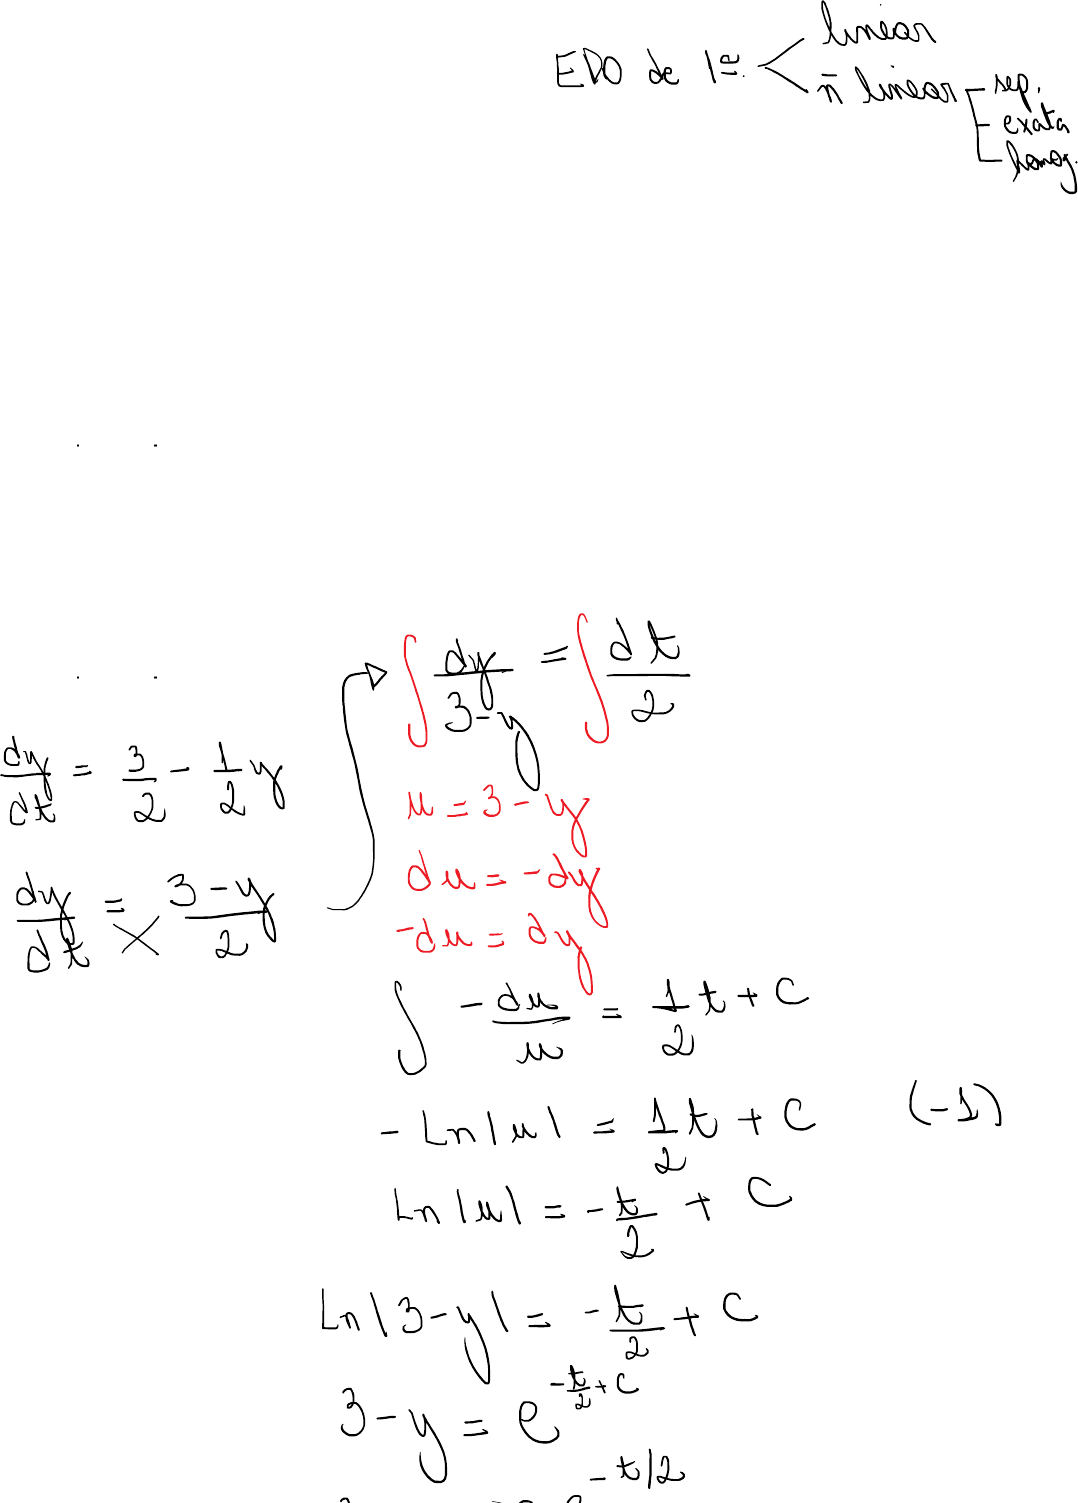 EDO de 1ª linear
n̄ linear sep.
exata
homog.
dy/dt = 3/2 - 1/2 y
dy/dt = 3-y/2
∫ dy/3-y = ∫ dt/2
u = 3-y
du = -dy
-du = dy
∫ -du/u = 1/2 t + C
- Ln|u| = 1/2 t + C (-1)
Ln|u| = -t/2 + C
Ln|3-y| = -t/2 + C
3-y = e^(-t/2+C)